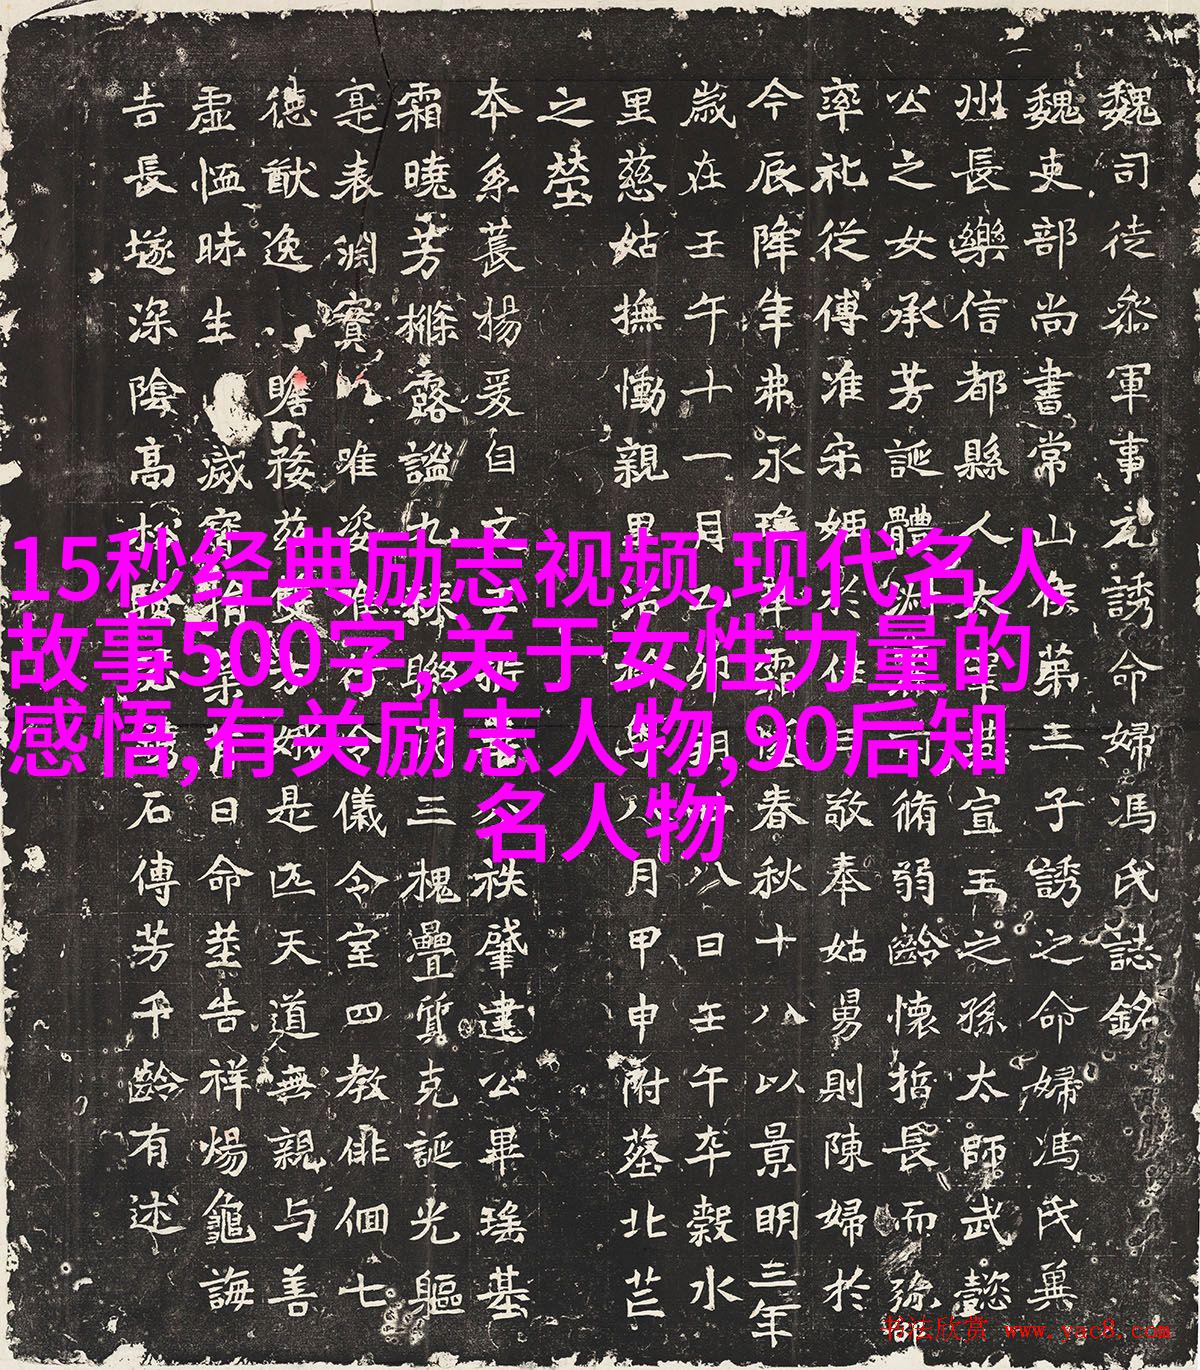 魏司徒叅軍事元誘命婦馮氏誌銘
魏吏部尚書常山侯第三子誘之命婦馮氏冀
州長樂信都縣人太宰宣王之孫太師武懿
公之女承芳誕體脩弱齡懷哲長而弥
率礼從傅准宋姬於敬奉姑舅則陳婦於
今辰降年弗永春秋十八以景明三年
歲在壬午十一月卯朔廿八日壬午卒穀水
里慈姑撫慟親八月甲申祔塟北芒
之塋
本系萇楊爰自文祑肇建公畢瑤基
霜曉芳檖露謐九三槐疊質克誕光軀
寔表淵賓唯姿儀令室四教俳佪七
德猷逸瞻務茲是匹天道無親与善
虛恤昧生滅寶日命塟告祥煬龜誨
吉長墜深陰高松石傳芳千齡有述
15秒经典励志视频,现代名人
故事500字,关于女性力量的
感悟,有关励志人物,90后知
名人物
书法欣赏 www.yac8.com